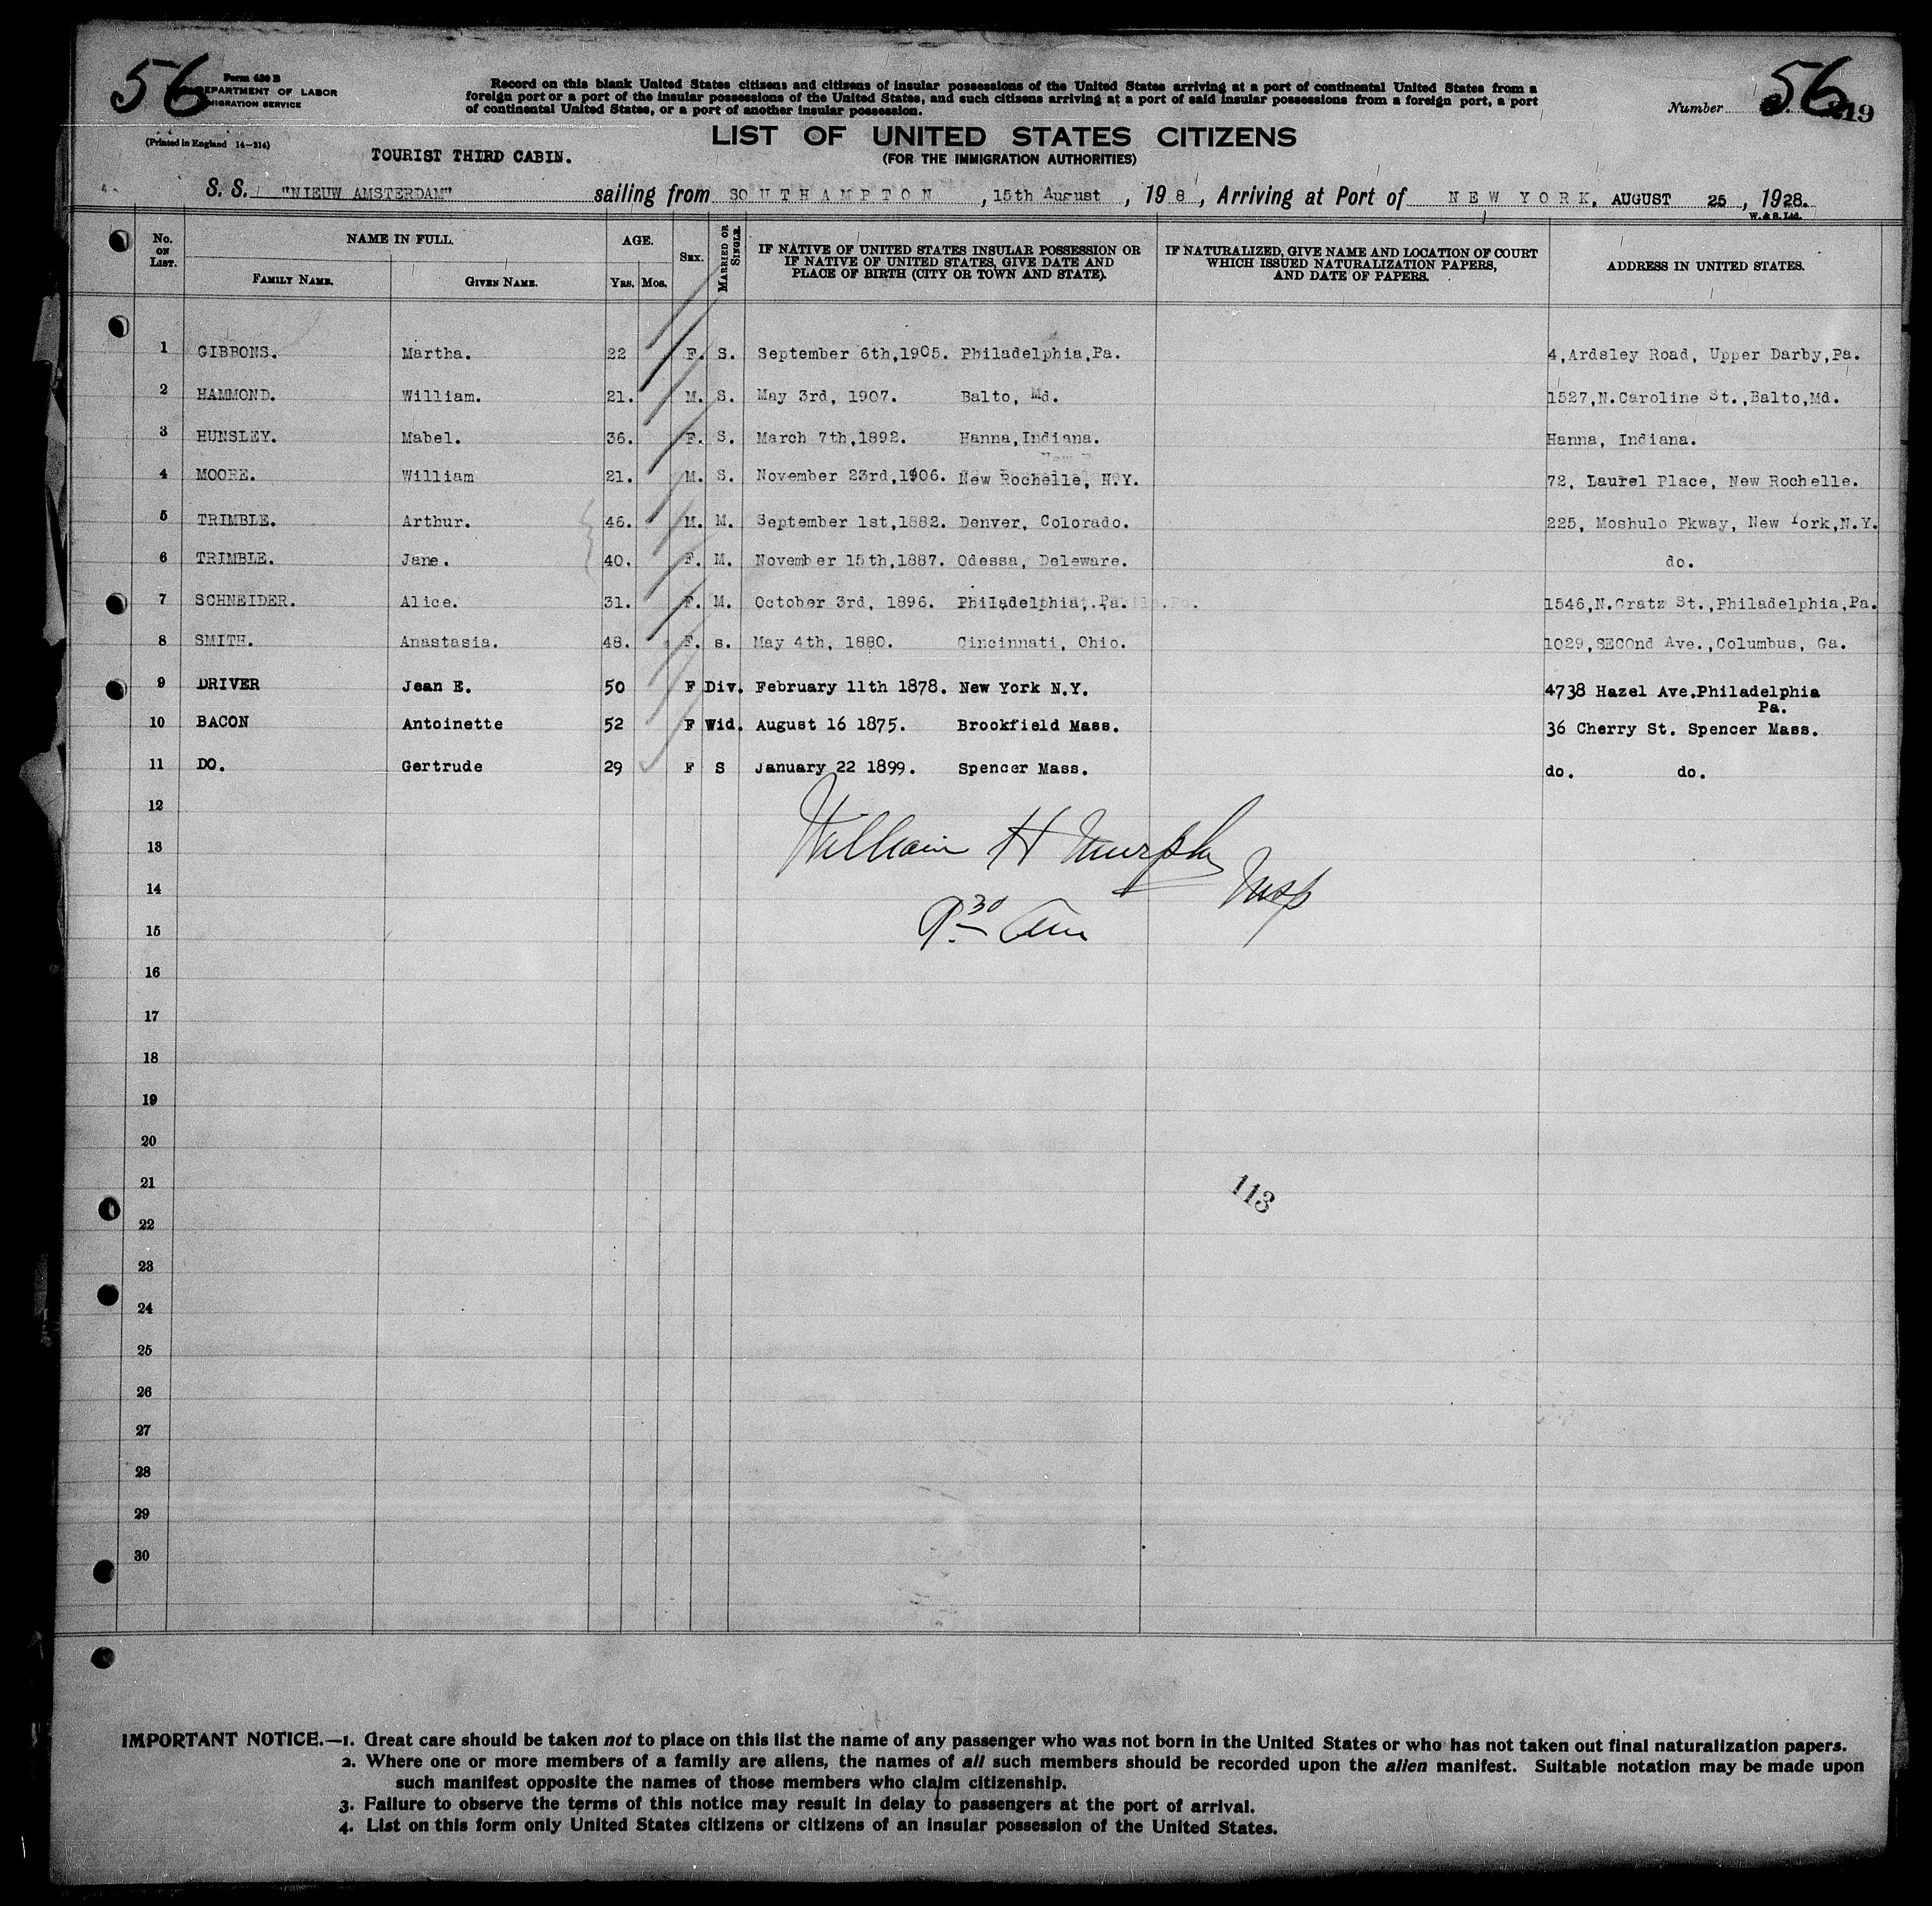 56
Form 630 B
DEPARTMENT OF LABOR
IMMIGRATION SERVICE
(Printed in England 14-214)
Record on this blank United States citizens and citizens of insular possessions of the United States arriving at a port of continental United States from a
foreign port or a port of the insular possessions of the United States, and such citizens arriving at a port of said insular possessions from a foreign port, a port
of continental United States, or a port of another insular possession.
Number 56 19
LIST OF UNITED STATES CITIZENS
(FOR THE IMMIGRATION AUTHORITIES)
TOURIST THIRD CABIN.
S. S. "NIEUW AMSTERDAM" sailing from SOUTHAMPTON, 15th August, 19 8, Arriving at Port of NEW YORK, AUGUST 25, 1928.
W. & S. Ltd.
No. ON LIST. NAME IN FULL. FAMILY NAME. GIVEN NAME. AGE. YRS. MOS. SEX. MARRIED OR SINGLE. IF NATIVE OF UNITED STATES INSULAR POSSESSION OR IF NATIVE OF UNITED STATES, GIVE DATE AND PLACE OF BIRTH (CITY OR TOWN AND STATE). IF NATURALIZED, GIVE NAME AND LOCATION OF COURT WHICH ISSUED NATURALIZATION PAPERS, AND DATE OF PAPERS. ADDRESS IN UNITED STATES.
1 GIBBONS. Martha. 22 F. S. September 6th,1905. Philadelphia,Pa. 4,Ardsley Road, Upper Darby,Pa.
2 HAMMOND. William. 21. M. S. May 3rd, 1907. Balto, Md. 1527,N.Caroline St.,Balto,Md.
3 HUNSLEY. Mabel. 36. F. S. March 7th,1892. Hanna,Indiana. Hanna, Indiana.
4 MOORE. William 21. M. S. November 23rd,1906. New Rochelle, N.Y. 72, Laurel Place, New Rochelle.
5 TRIMBLE. Arthur. 46. M. M. September 1st,1882. Denver, Colorado. 225, Moshulo Pkway, New York,N.Y.
6 TRIMBLE. Jane. 40. F. M. November 15th,1887. Odessa, Deleware. do.
7 SCHNEIDER. Alice. 31. F. M. October 3rd, 1896. Philadelphia, Pa. 1546,N.Gratz St.,Philadelphia,Pa.
8 SMITH. Anastasia. 48. F. s. May 4th, 1880. Cincinnati, Ohio. 1029,SECOnd Ave.,Columbus, Ga.
9 DRIVER Jean E. 50 F Div. February 11th 1878. New York N.Y. 4738 Hazel Ave.Philadelphia
Pa.
10 BACON Antoinette 52 F Wid. August 16 1875. Brookfield Mass. 36 Cherry St. Spencer Mass.
11 DO. Gertrude 29 F S January 22 1899. Spencer Mass. do. do.
12
13 William H Murphy
14 Insp
15 9.30 Am
16
17
18
19
20
21 113
22
23
24
25
26
27
28
29
30
IMPORTANT NOTICE.—1. Great care should be taken not to place on this list the name of any passenger who was not born in the United States or who has not taken out final naturalization papers.
2. Where one or more members of a family are aliens, the names of all such members should be recorded upon the alien manifest. Suitable notation may be made upon
such manifest opposite the names of those members who claim citizenship.
3. Failure to observe the terms of this notice may result in delay to passengers at the port of arrival.
4. List on this form only United States citizens or citizens of an insular possession of the United States.